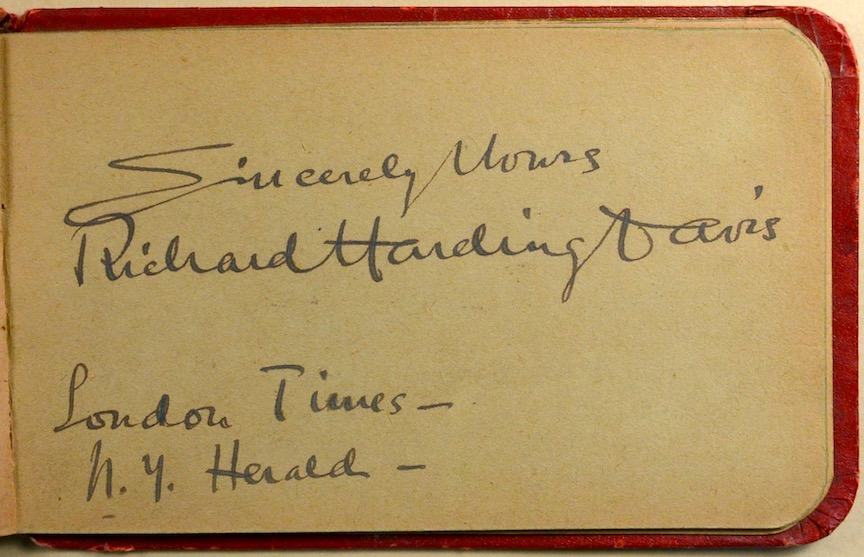 Sincerely Yours
Richard Harding Davis
London Times —
N.Y. Herald —